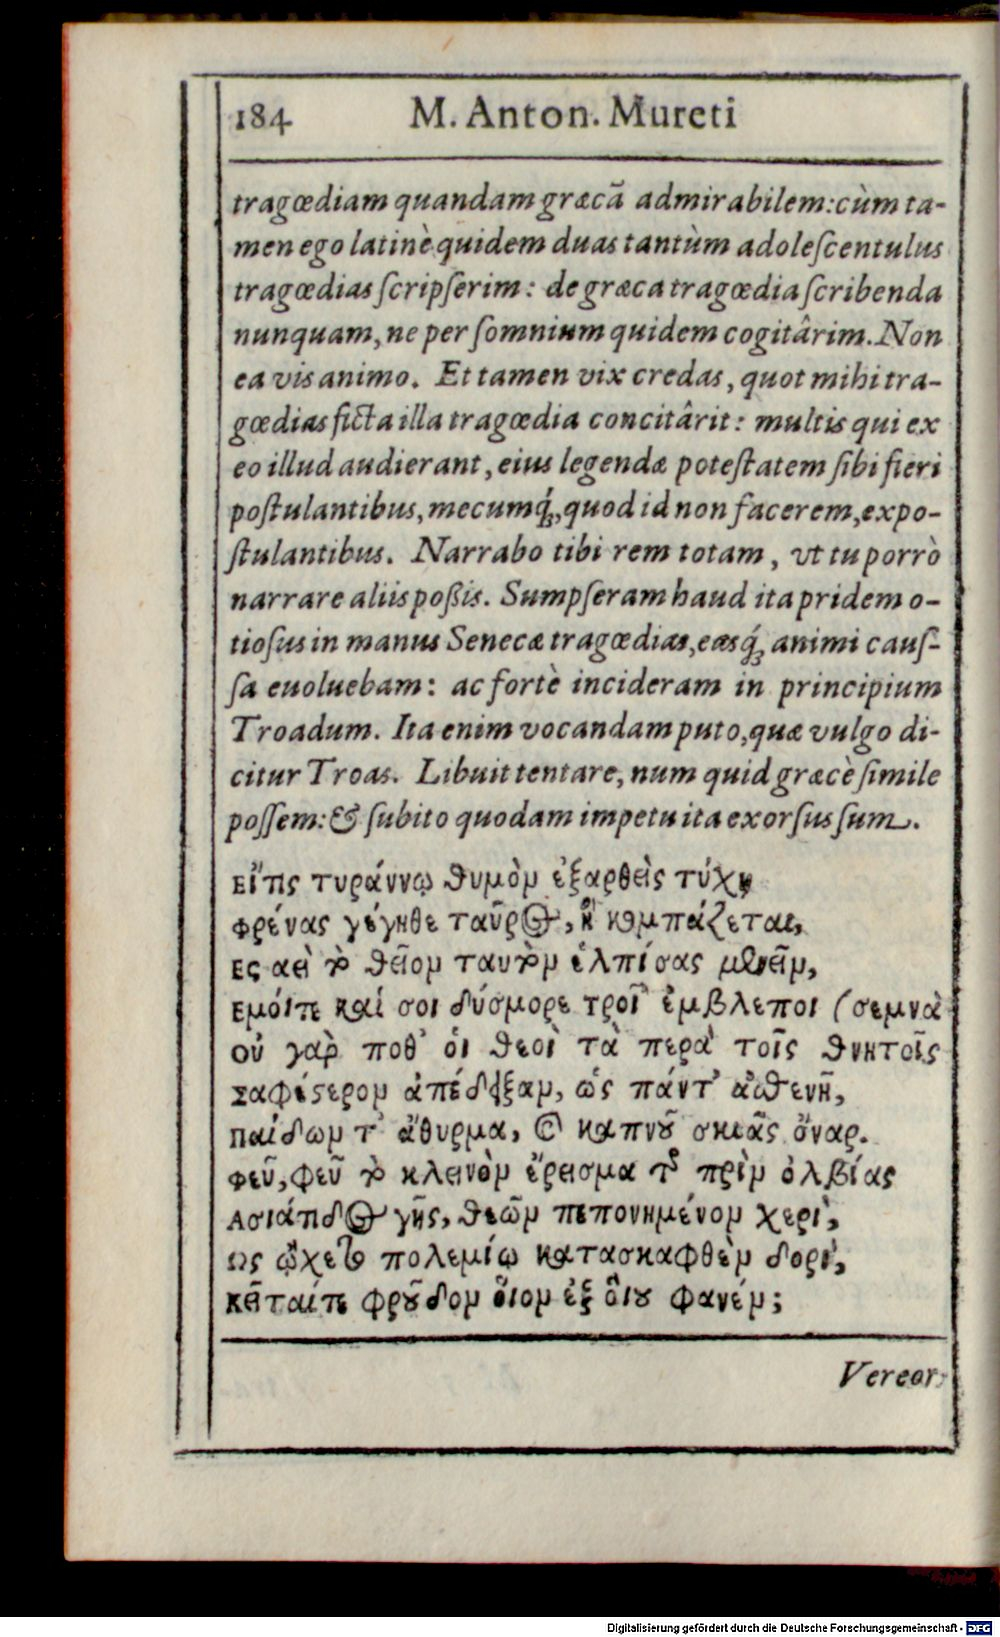 184 M. Anton. Mureti
tragœdiam quandam græcã admirabilem: cùm ta-
men ego latinè quidem duas tantùm adoleſcentulus
tragœdias ſcripſerim: de græca tragœdia ſcribenda
nunquam, ne per ſomnium quidem cogitârim. Non
ea vis animo. Et tamen vix credas, quot mihi tra-
gœdias ficta illa tragœdia concitârit: multis qui ex
eo illud audierant, eius legendæ poteſtatem ſibi fieri
poſtulantibus, mecumq́;, quod id non facerem, expo-
ſtulantibus. Narrabo tibi rem totam, vt tu porrò
narrare aliis poßis. Sumpſeram haud ita pridem o-
tioſus in manus Senecæ tragœdias, easq́; animi cauſ-
ſa euoluebam: ac fortè incideram in principium
Troadum. Ita enim vocandam puto, quæ vulgo di-
citur Troas. Libuit tentare, num quid græcè ſimile
poſſem: & ſubito quodam impetu ita exorſus ſum.
Εἴτις τυράννῳ θυμὸν ἐξαρθεὶς τύχῃ
Φρένας γέγηθε ταῦρος, ἢ κομπάζεται,
Ες αεὶ τὸ θεῖον ταυτὸν ἐλπίσας μένειν,
Εμόιτε καί σοι δύσμορε τροῖ ἐμβλεποι (σεμνὰ
Οὐ γαρ ποθ' ὁι θεοὶ τὰ περα τοῖς θνητοῖς
Σαφέστερον ἀπέδειξαν, ὡς πάντ' ἀσθενῆ,
Παίδων τ' ἄθυρμα, καὶ καπνοῦ σκιᾶς ὄναρ.
Φεῦ, φεῦ τὸ κλεινὸν ἔρεισμα τῆς πρὶν ὀλβίας
Ασιάτιδος γῆς, θεῶν πεπονημένον χερὶ,
Ως ᾤχετο πολεμίῳ κατασκαφθὲν δορὶ,
Κεῖταίτε φροῦδον ὅιον ἐξ ὅιου φανέν;
Vereor
Digitalisierung gefördert durch die Deutsche Forschungsgemeinschaft - DFG